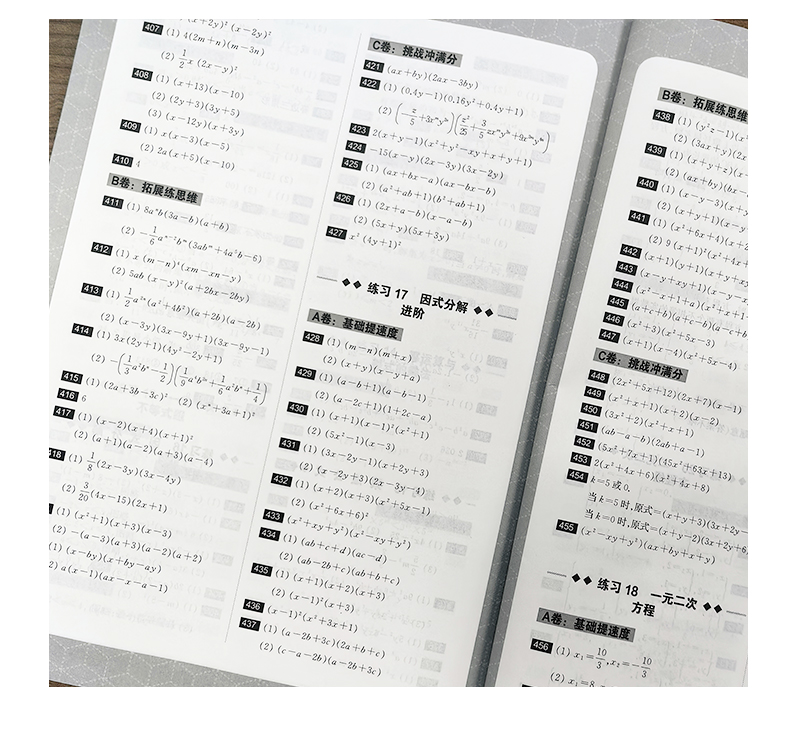 (x+2y)²(x-2y)²
407 (1) 4(2m+n)(m-3n)
(2) 1/2 x(2x-y)²
408 (1) (x+13)(x-10)
(2) (2y+3)(3y+5)
(3) (x-12y)(x+3y)
409 (1) x(x-3)(x-5)
(2) 2a(x+5)(x-10)
410 4
B卷：拓展练思维
411 (1) 8aⁿb(3a-b)(a+b)
412 (1) x(m-n)⁴(xm-xn-y)
(2) 5ab(x-y)²(a+2bx-2by)
413 (1) 1/2 a²ⁿ(a²+4b²)(a+2b)(a-2b)
(2) (x-3y)(3x-9y+1)(3x-9y-1)
414 (1) 3x(2y+1)(4y²-2y+1)
415 (1) (2a+3b-3c)² (2) (x²+3a+1)²
416 6
417 (1) (x-2)(x+4)(x+1)²
(2) (a+1)(a-2)(a+3)(a-4)
418 (1) 1/8(2x-3y)(3x-4y)
(2) 3/20(4x-15)(2x+1)
(1) (x²+1)(x+3)(x-3)
(2) -(a-3)(a+3)(a-2)(a+2)
(1) (x-by)(x+by-ay)
(2) a(x-1)(ax-x-a-1)
C卷：挑战冲满分
421 (ax+by)(2ax-3by)
422 (1) (0.4y-1)(0.16y²+0.4y+1)
423 2(x+y-1)(x²+y²-xy+x+y+1)
424 -15(x-y)(2x-3y)(3x-2y)
425 (1) (ax+bx-a)(ax-bx-b)
(2) (a²+ab+1)(b²+ab+1)
426 (1) (2x+a-b)(x-a-b)
(2) (5x+y)(5x+3y)
427 x²(4y+1)²
练习17 因式分解
进阶
A卷：基础提速度
428 (1) (m-n)(m+x)
(2) (x+y)(x-y+a)
429 (1) (a-b+1)(a-b-1)
(2) (a-2c+1)(1+2c-a)
430 (1) (x+1)(x-1)²(x²+1)
(2) (5x²-1)(x-3)
431 (1) (3x-2y-1)(x+2y+3)
(2) (x-2y+3)(2x-3y-4)
432 (1) (x+2)(x+3)(x²+5x-1)
(2) (x²+6x+6)²
433 (x²+xy+y²)(x²-xy+y²)
434 (1) (ab+c+d)(ac-d)
(2) (ab-2b+c)(ab+b+c)
435 (1) (x+1)(x+2)(x+3)
(2) (x-1)²(x+3)
436 (x-1)²(x²+3x+1)
437 (1) (a-2b+3c)(2a+b+c)
(2) (c-a-2b)(a-2b+3c)
B卷：拓展练思维
438 (1) (y²z-1)(x³
(2) (3ax+y)(2x
439 (1) (x+y+z)(x-
(2) (ax+by)(bx-
440 (1) (x-y-3)(x+y
(2) (x+y+1)(x-y
441 (1) (x²+6x+4)(x+2
(2) 9(x+1)²(x²+4x+
442 (x+1)(y+1)(x+y+xy
443 (x-y+xy+1)(x-y-x
444 (x²-x+1+a)(x²-x+
445 (a+c+b)(a+c-b)(a-c+b
446 (x²+3)(x²+5x-3)
447 (x+1)(x-4)(x²+5x-4)
C卷：挑战冲满分
448 (2x²+5x+12)(2x+7)(x-1)
449 (x²+x+1)(x+2)(x-2)
450 (3x²+2)(x²+x+1)
451 (ab-a-b)(2ab+a-1)
452 (5x²+7x+1)(45x²+63x+13)
453 2(x²+4x+6)(x²+4x+8)
454 k=5或0,
当k=5时,原式=(x+y+3)(3x+2y-
当k=0时,原式=(x+y-2)(3x+2y+6
455 (x²-xy+y²)(ax+by+x+y)
练习18 一元二次
方程
A卷：基础提速度
456 (1) x₁=10/3,x₂=-10/3
(2) x₁=8